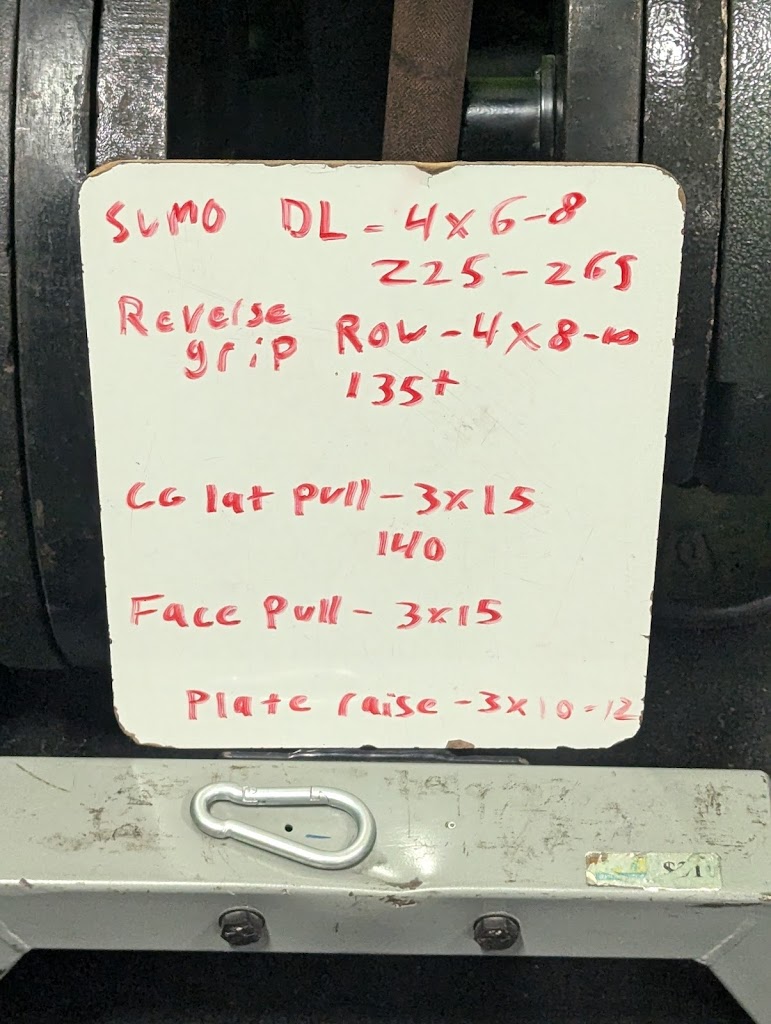 SUMO DL - 4x6-8
225-265
Reverse
grip Row - 4x8-10
135+
CG lat pull - 3x15
140
Face Pull - 3x15
Plate raise - 3x10-12